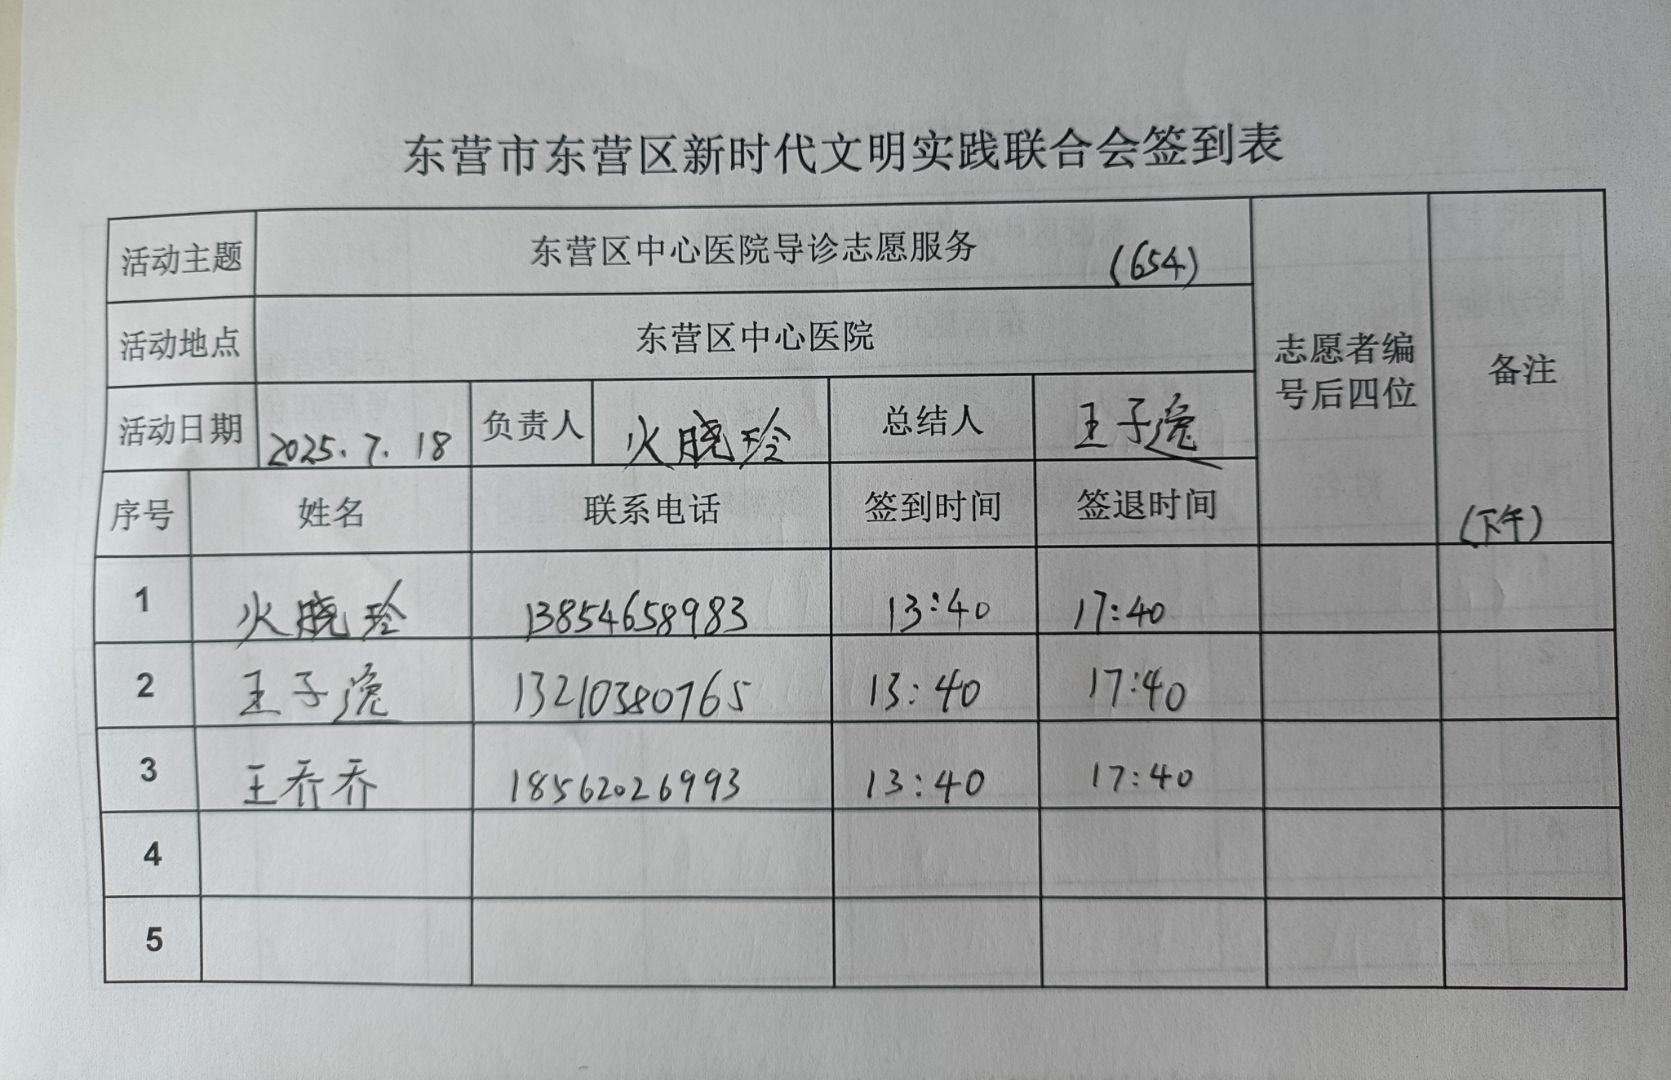 东营市东营区新时代文明实践联合会签到表
活动主题 东营区中心医院导诊志愿服务 (654)
活动地点 东营区中心医院
志愿者编号后四位 备注
活动日期 2025.7.18 负责人 火晓玲 总结人 王子逸
序号 姓名 联系电话 签到时间 签退时间 (下午)
1 火晓玲 13854658983 13:40 17:40
2 王子逸 13210380765 13:40 17:40
3 王乔乔 18562026993 13:40 17:40
4
5